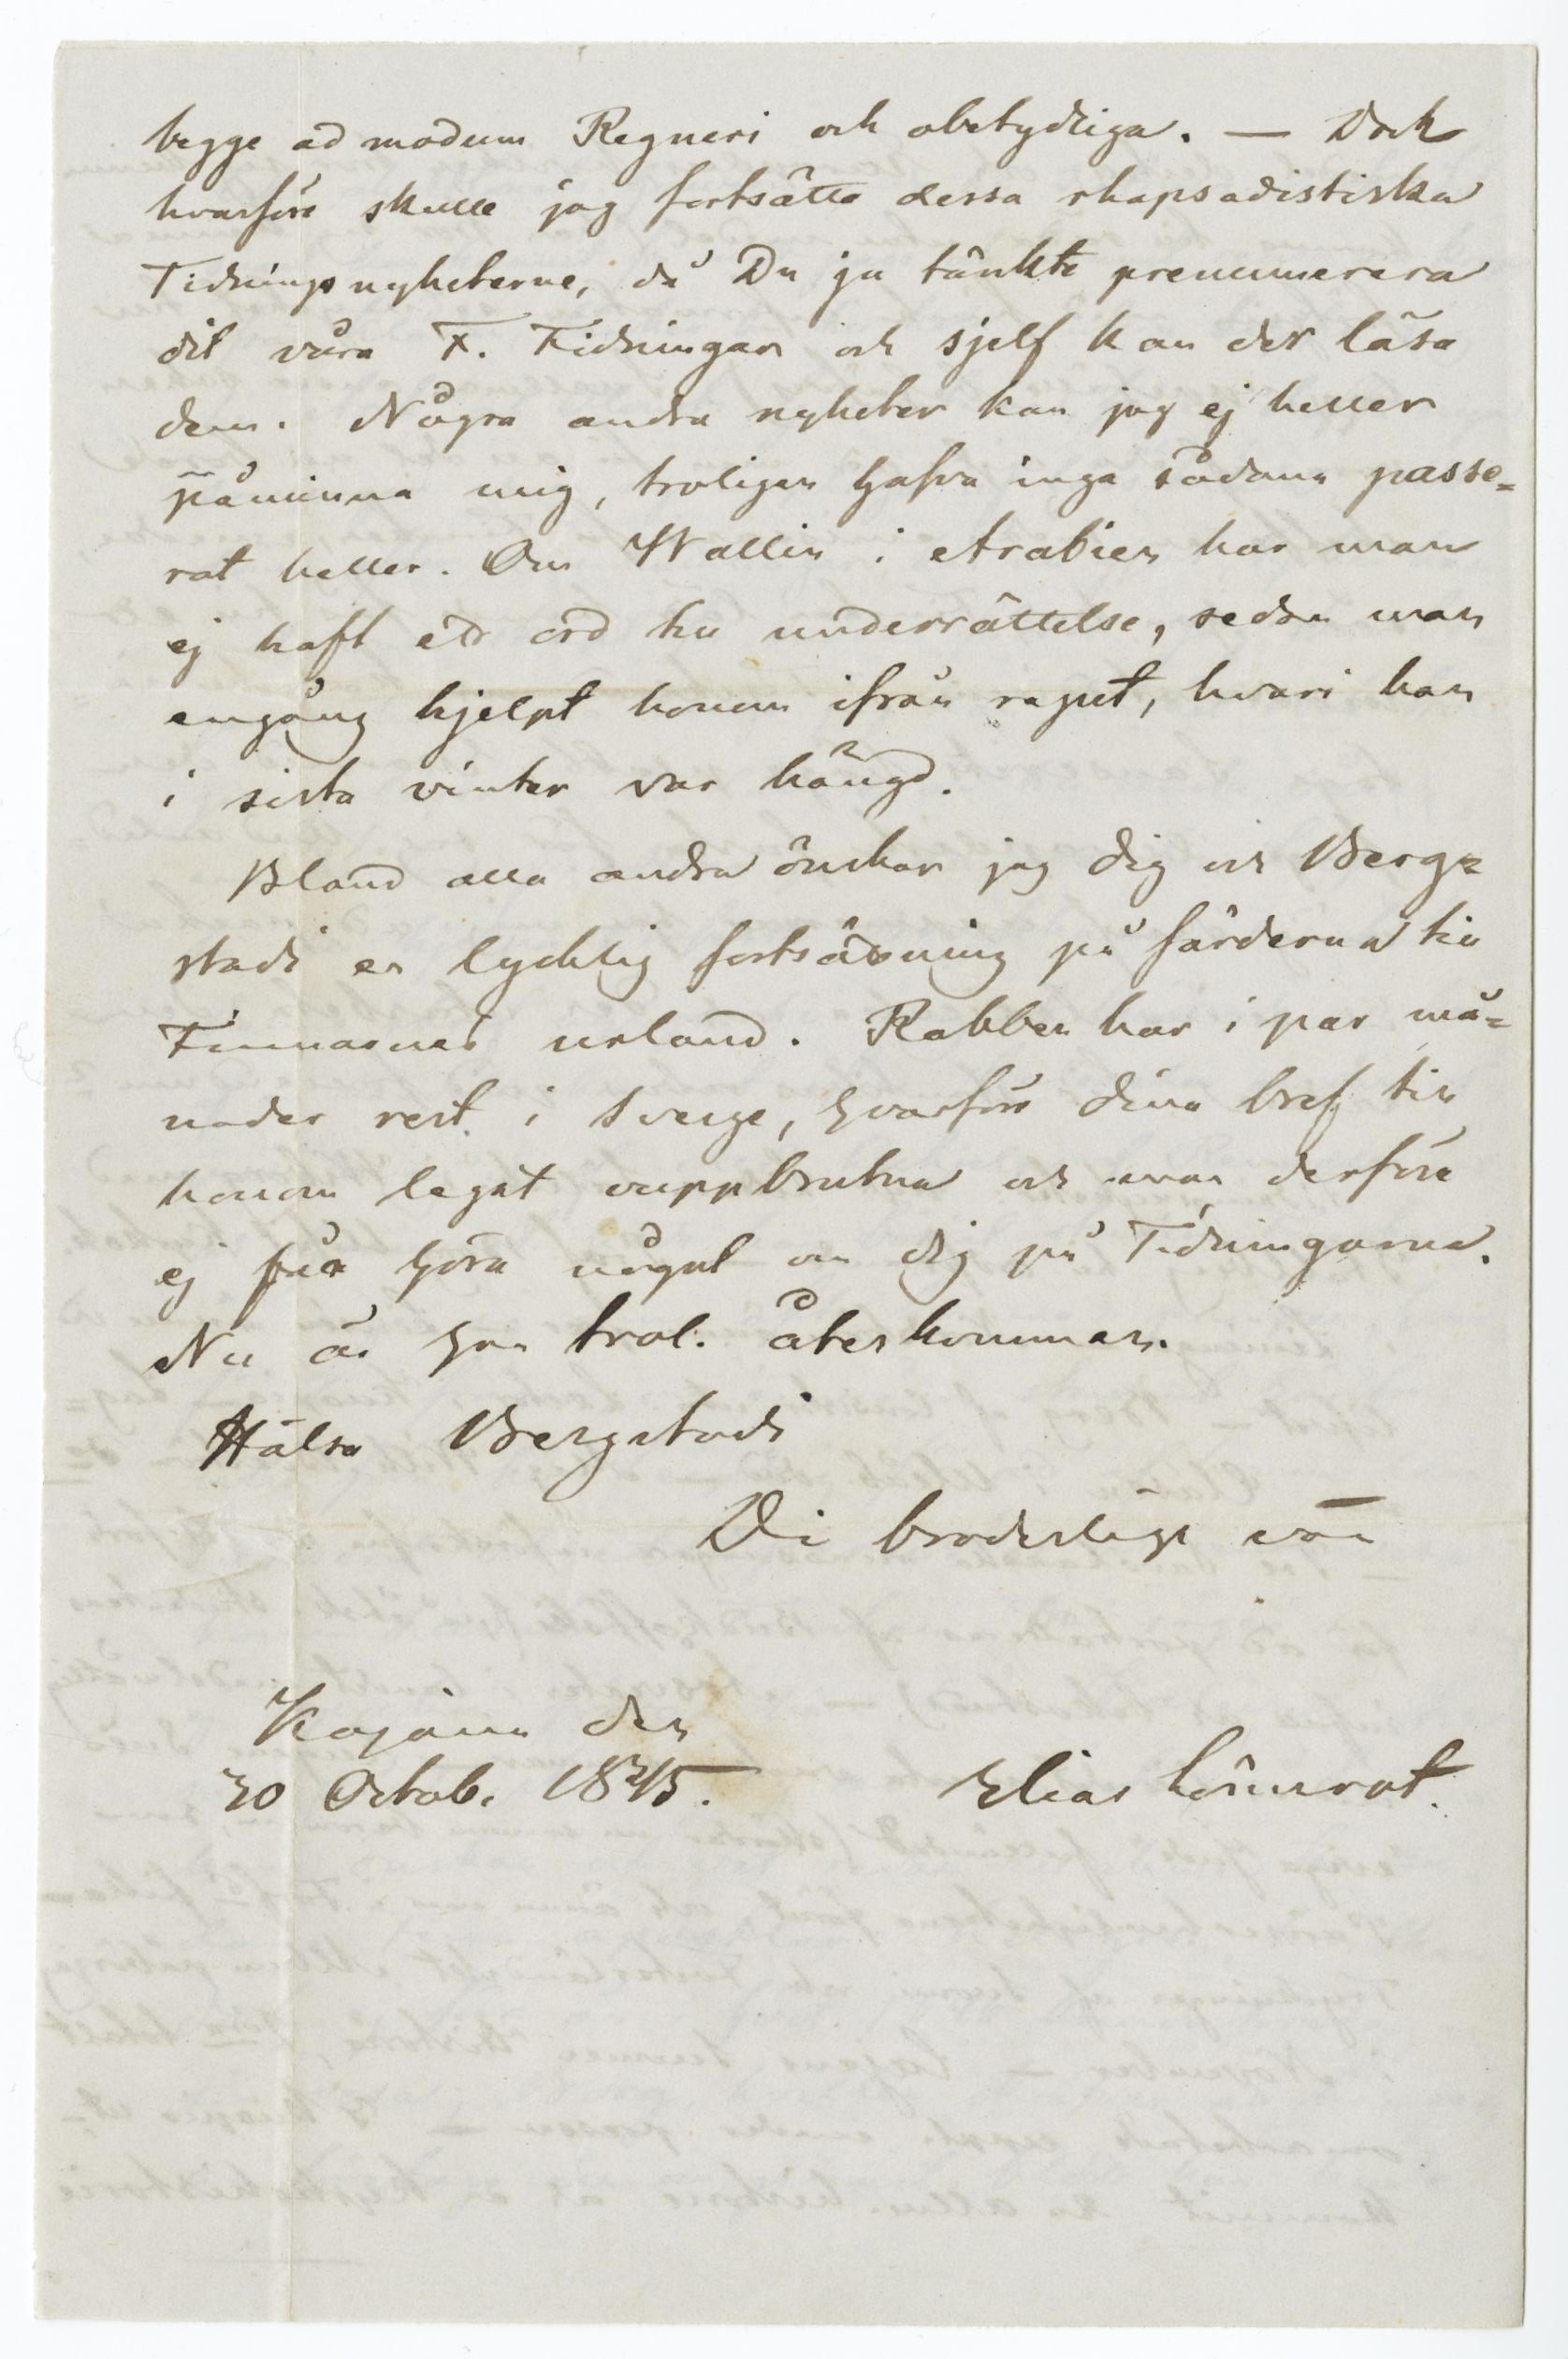 begge ad modum Regneri och obetydliga. — Dock
hvarföre skulle jag fortsätta dessa rhapsodistiska
Tidningsnyheterne, då Du ju tänkte prenumerera
dit våra F. Tidningar och sjelf kan der läsa
dem. Några andra nyheter kan jag ej heller
påminna mig, troligen hafva inga sådana passe=
rat heller. Om Wallin i Arabien har man
ej haft ett ord till underrättelse, sedan man
engång hjelpt honom ifrån repet, hvari han
i sista vinter var hängd.
Bland alla andra önskar jag dig och Berg=
stadi en lycklig fortsättning på färderna till
Finnarnes urland. Rabben har i par må=
nader rest i Sverge, hvarföre dina bref till
honom legat ouppbrutna och man derföre
ej får höra något om dig på Tidningarna.
Nu är han trol. återkommen.
Hälsa Bergstadi
Din broderlige vän
Kajana den
30 Octob. 1845.
Elias Lönnrot.